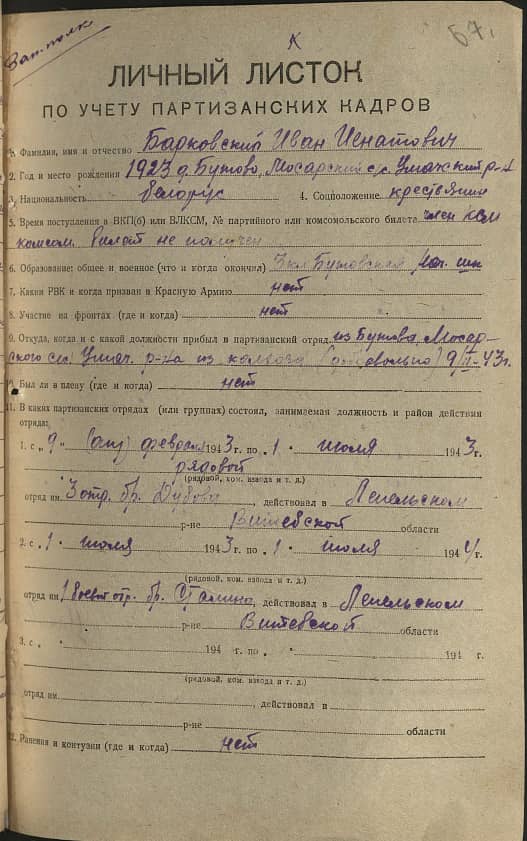 Зат. полк
К
67.
ЛИЧНЫЙ ЛИСТОК
ПО УЧЕТУ ПАРТИЗАНСКИХ КАДРОВ
1. Фамилия, имя и отчество Барковский Иван Игнатович
2. Год и место рождения 1923 д. Бутово, Мосарский с/с Ушачский р-н
3. Национальность белорус 4. Соцположение крестьянин
5. Время поступления в ВКП(б) или ВЛКСМ, № партийного или комсомольского билета член
комсом. билет не получен
6. Образование: общее и военное (что и когда окончил) 3 кл. Бутовская нач. шк
7. Каким РВК и когда призван в Красную Армию нет
8. Участие на фронтах (где и когда) нет
9. Откуда, когда и с какой должности прибыл в партизанский отряд из Бутова, Мосар-
ского с/с. Ушач. р-на из колхоза (добровольно) 9/II-43г.
10. Был ли в плену (где и когда) нет
11. В каких партизанских отрядах (или группах) состоял, занимаемая должность и район действия
отряда:
1. с „9" февраля 1943 г. по „1" июля 1943 г.
рядовой
(рядовой, ком. взвода и т. д.)
отряд им 3 отр. бр. Дубова, действовал в Лепельском
р-не Витебской области
2. с „1" июля 1943 г. по „1" июля 1944 г.
(рядовой, ком. взвода и т. д.)
отряд им 1 боевой отр. бр. Сталина, действовал в Лепельском
р-не Витебской области
3. с „ " 194 г. по „ " 194 г.
(рядовой, ком. взвода и т. д.)
отряд им , действовал в
р-не области
12. Ранения и контузии (где и когда) нет